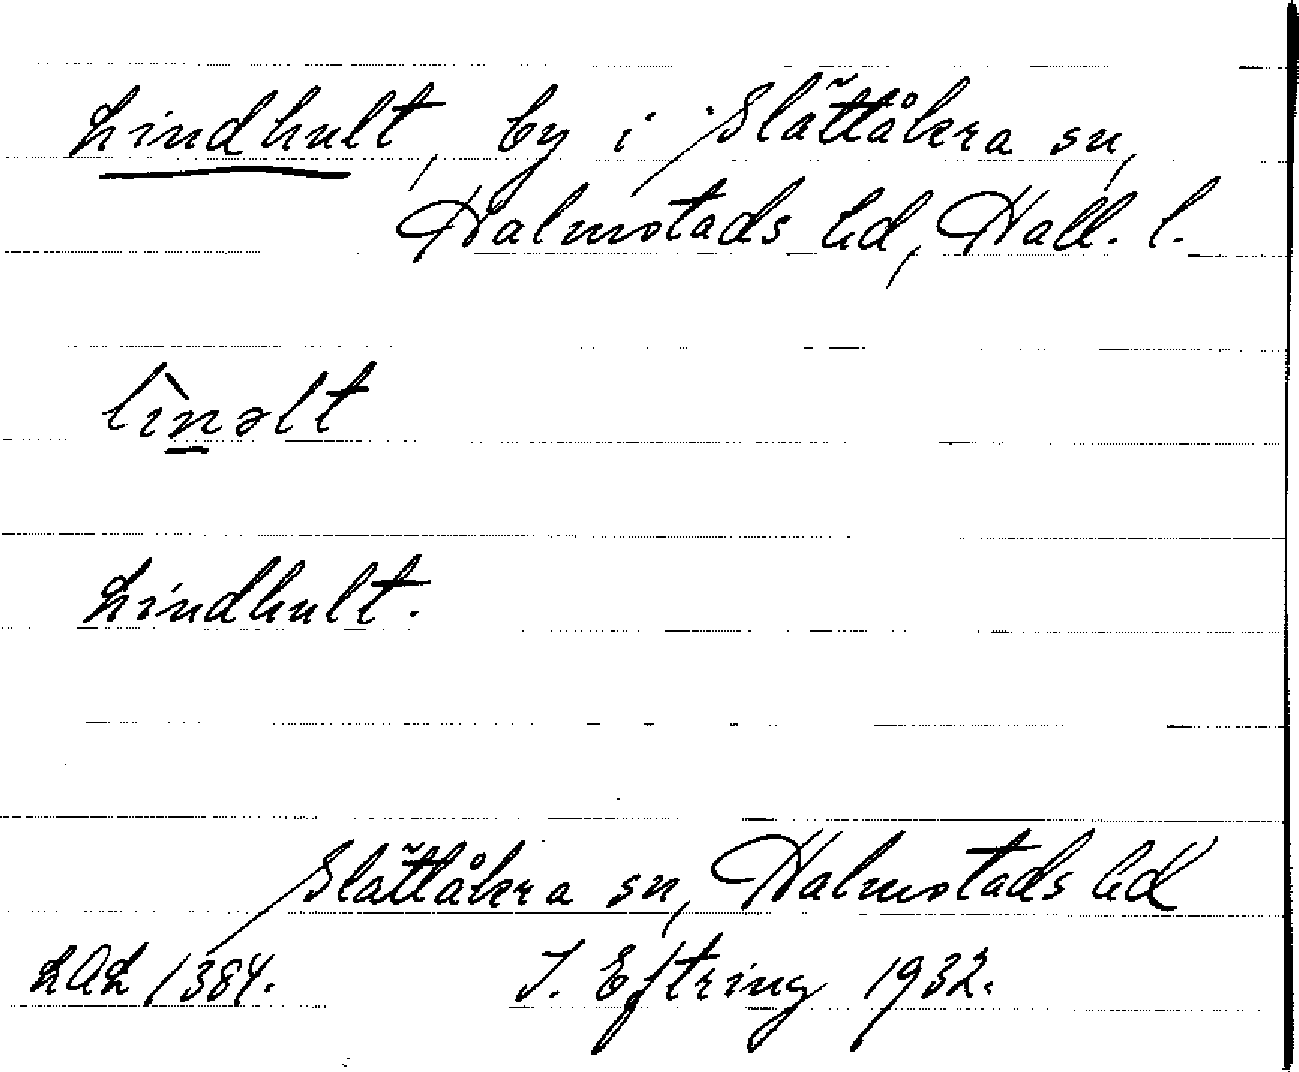 Lindhult, by i Slättåkra sn,
Halmstads hd, Hall. l.
lìnəlt
Lindhult.
Slättåkra sn, Halmstads hd
LAL 1384. J. Eftring 1932.